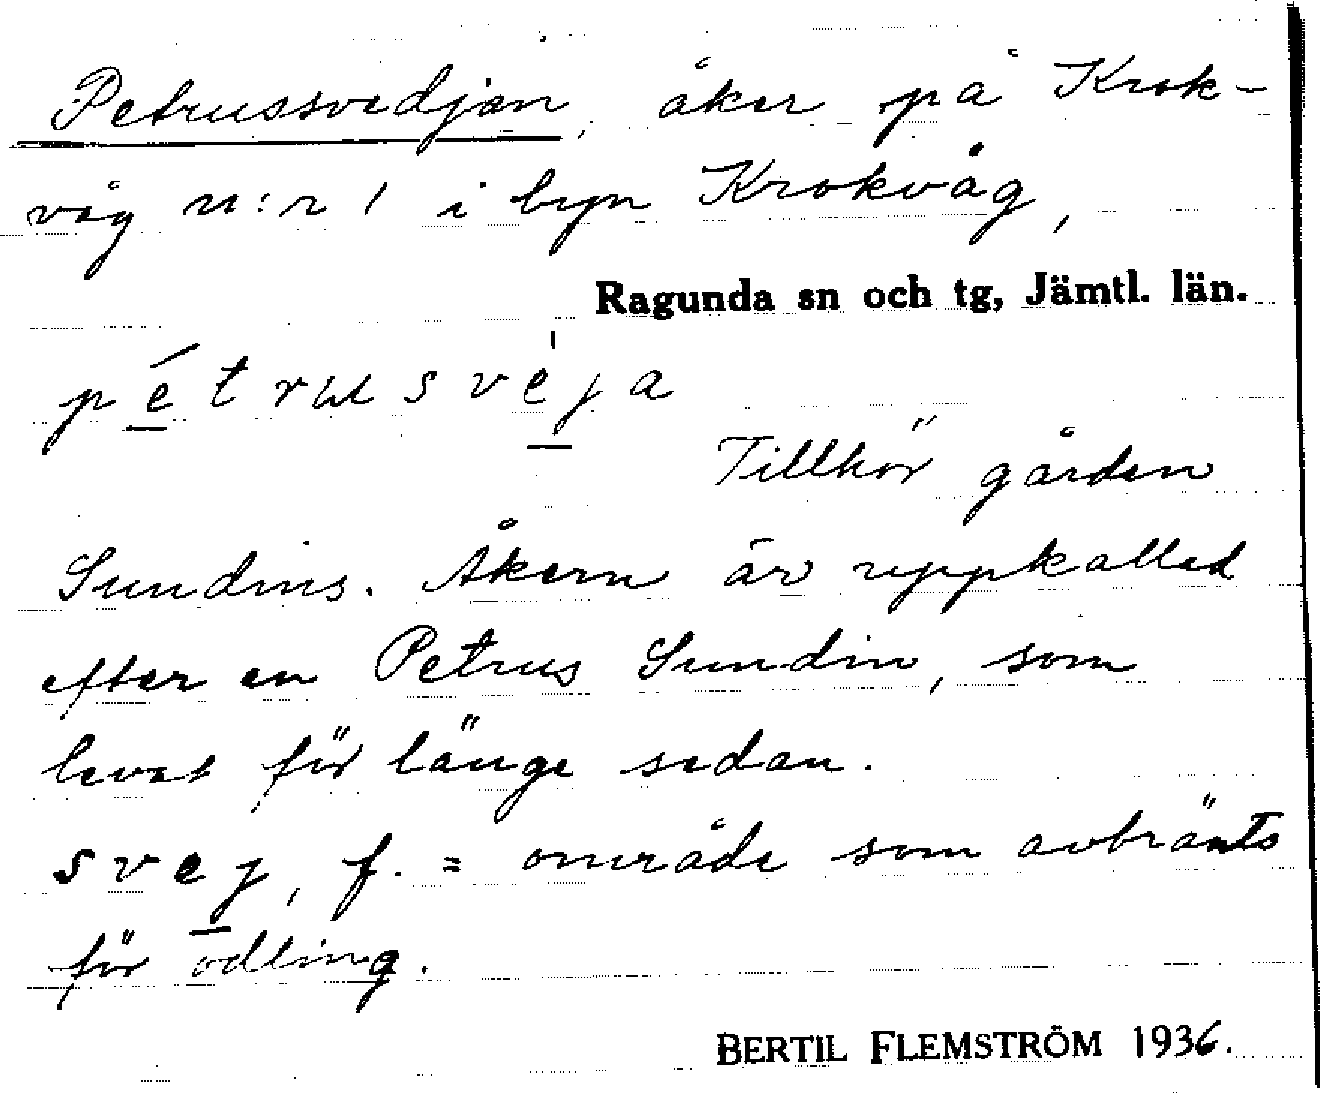 Petrussvedjan, åker på Krok-
våg n:r 1 i byn Krokvåg,
Ragunda sn och tg, Jämtl. län.
pétrusvèja
Tillhör gården
Sundins. Åkern är uppkallad
efter en Petrus Sundin, som
levat för länge sedan.
svej, f. = område som avbränts
för odling.
BERTIL FLEMSTRÖM 1936.